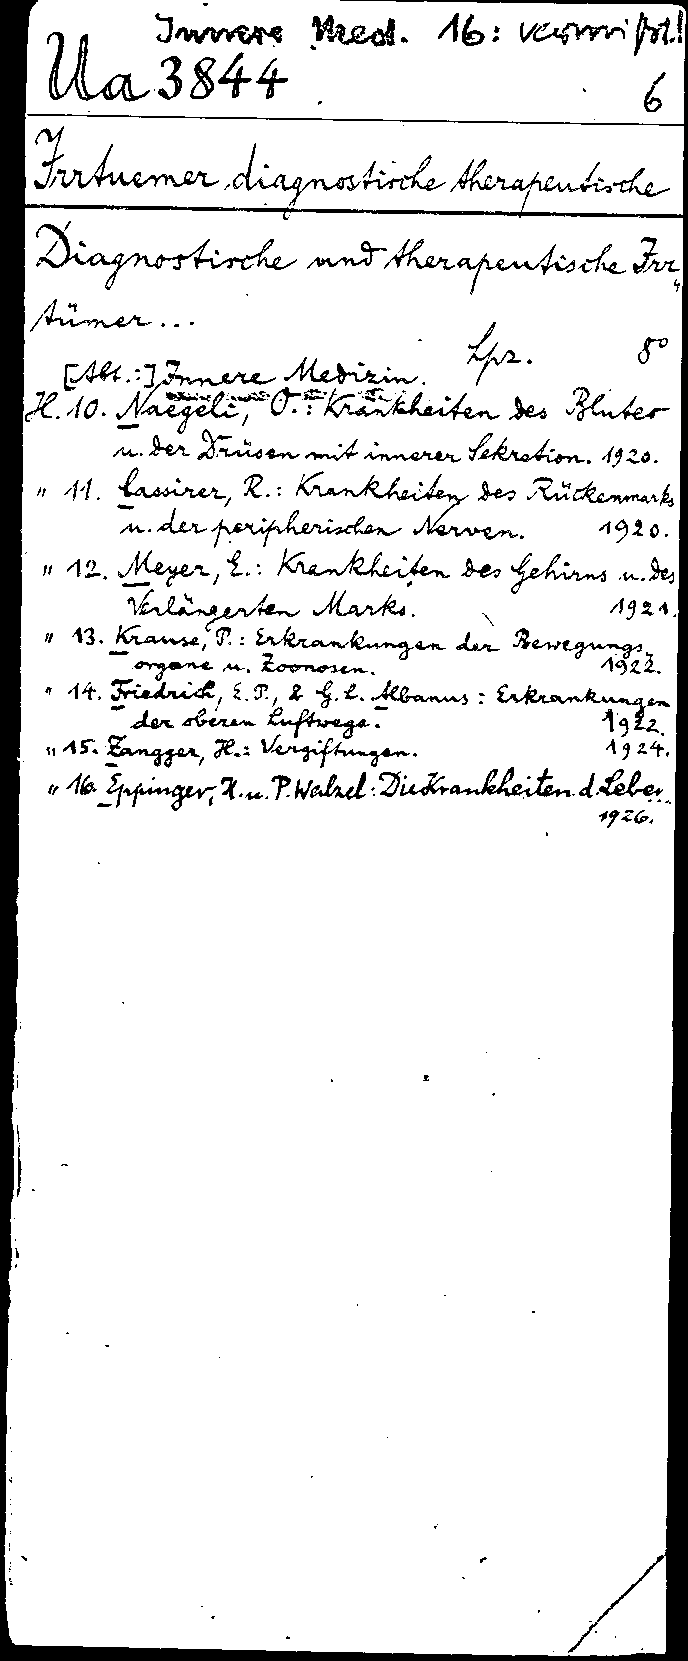 Innere Med. 16: vermißt!
Ua 3844
6
Irrtuemer, diagnostische therapeutische
Diagnostische und therapeutische Irr„
tümer...
Lpz. 8°
[Abt.:] Innere Medizin.
H. 10. Naegeli, O.: Krankheiten des Blutes
u. der Drüsen mit innerer Sekretion. 1920.
" 11. Cassirer, R.: Krankheiten des Rückenmarks
u. der peripherischen Nerven. 1920.
" 12. Meyer, E.: Krankheiten des Gehirns u. des
Verlängerten Marks. 1921.
" 13. Krause, P.: Erkrankungen der Bewegungs-
organe u. Zoonosen. 1922.
" 14. Friedrich, E. P., & G. L. Albanus: Erkrankungen
der oberen Luftwege. 1922.
" 15. Zangger, H.: Vergiftungen. 1924.
" 16. Eppinger, H. u. P. Walzel: Die Krankheiten d. Leber...
1926.